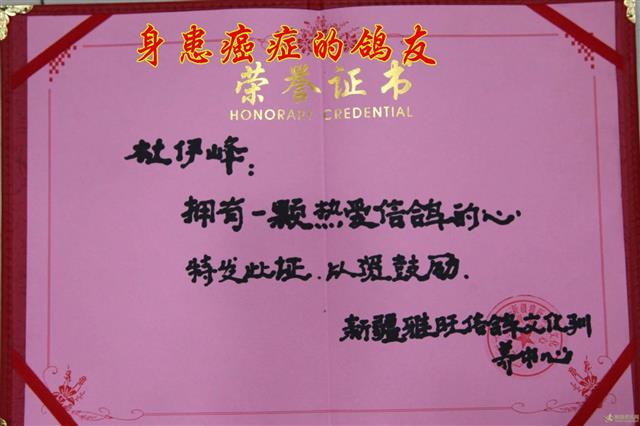 身患癌症的鸽友
荣誉证书
HONORARY CREDENTIAL
杜伊峰：
拥有一颗热爱信鸽的心
特发此证.以资鼓励.
新疆雅旺信鸽文化驯
养中心